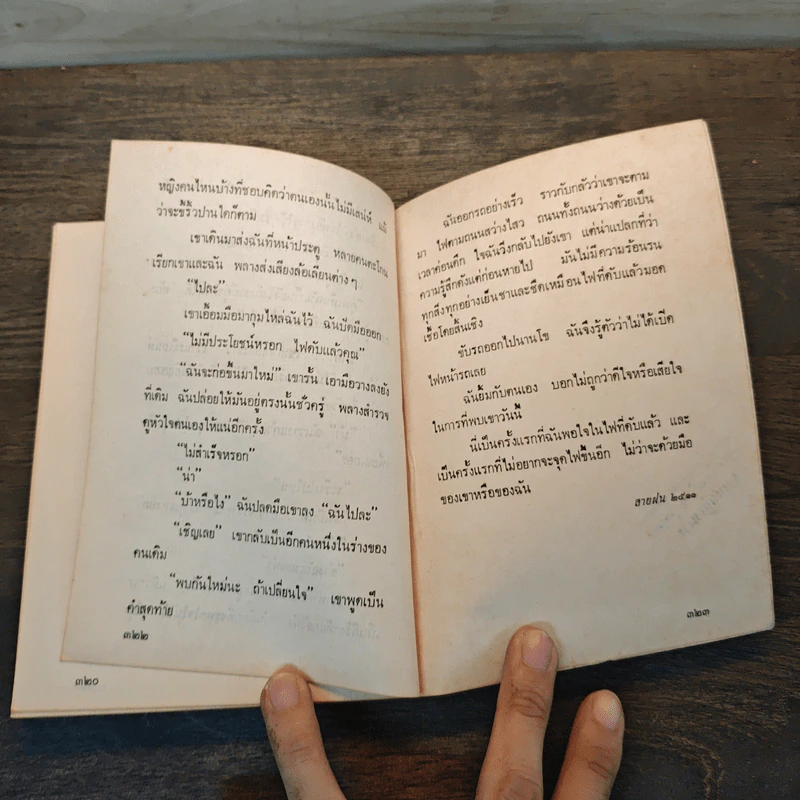 หญิงคนไหนบ้างที่ชอบคิดว่าตนเองนั้นไม่มีเสน่ห์ แม้
ว่าจะขี้ริ้วปานใดก็ตาม
เขาเดินมาส่งฉันที่หน้าประตู หลายคนตะโกน
เรียกเขาและฉัน พลางส่งเสียงล้อเลียนต่าง ๆ
“ไปละ”
เขาเอื้อมมือมากุมไหล่ฉันไว้ ฉันบิดมือออก
“ไม่มีประโยชน์หรอก ไฟดับแล้วคุณ”
“ฉันจะก่อขึ้นมาใหม่” เขารั้น เอามือวางลงยัง
ที่เดิม ฉันปล่อยให้มันอยู่ตรงนั้นชั่วครู่ พลางสำรวจ
ดูหัวใจตนเองให้แน่อีกครั้ง
“ไม่สำเร็จหรอก”
“น่า”
“บ้าหรือไง” ฉันปลดมือเขาลง “ฉันไปละ”
“เชิญเลย” เขากลับเป็นอีกคนหนึ่งในร่างของ
คนเดิม
“พบกันใหม่นะ ถ้าเปลี่ยนใจ” เขาพูดเป็น
คำสุดท้าย
๓๒๒
๓๒๐
ฉันออกรถอย่างเร็ว ราวกับกลัวว่าเขาจะตาม
มา ไฟตามถนนสว่างไสว ถนนทั้งถนนว่างด้วยเป็น
เวลาค่อนดึก ใจฉันวิ่งกลับไปยังเขา แต่น่าแปลกที่ว่า
ความรู้สึกดังแต่ก่อนหายไป มันไม่มีความร้อนรน
ทุกสิ่งทุกอย่างเย็นชาและชืดเหมือนไฟที่ดับแล้วมอด
เชื้อโดยสิ้นเชิง
ขับรถออกไปนานโข ฉันจึงรู้ตัวว่าไม่ได้เปิด
ไฟหน้ารถเลย
ฉันยิ้มกับตนเอง บอกไม่ถูกว่าดีใจหรือเสียใจ
ในการที่พบเขาวันนี้
นี่เป็นครั้งแรกที่ฉันพอใจในไฟที่ดับแล้ว และ
เป็นครั้งแรกที่ไม่อยากจะจุดไฟขึ้นอีก ไม่ว่าจะด้วยมือ
ของเขาหรือของฉัน
สายฝน ๒๕๑๑
๓๒๓